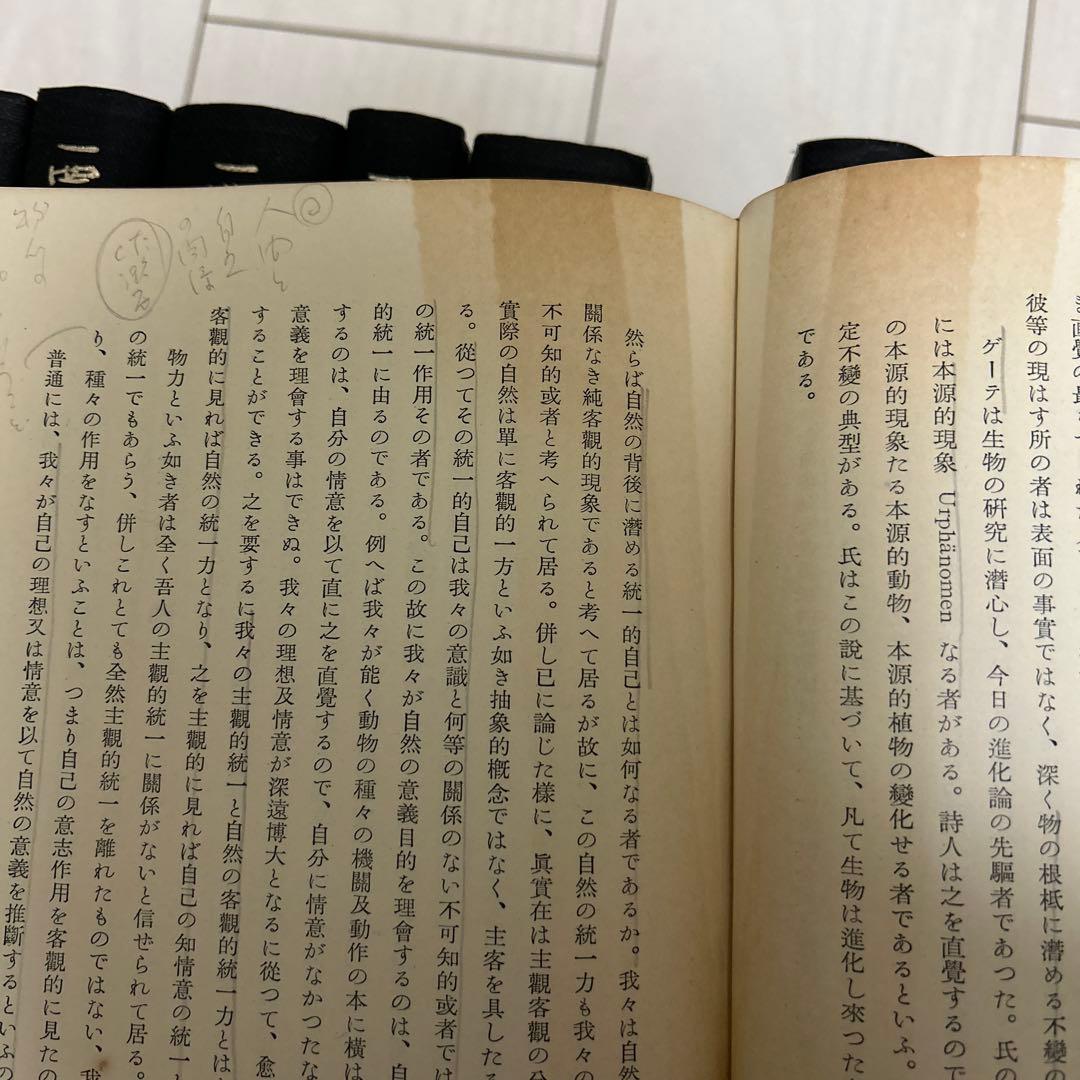 彼等の現はす所の者は表面の事實ではなく、深く物の根柢に潛める不變の
ゲーテは生物の硏究に潛心し、今日の進化論の先驅者であつた。氏の
には本源的現象 Urphänomen なる者がある。詩人は之を直覺するので
の本源的現象たる本源的動物、本源的植物の變化せる者であるといふ。
定不變の典型がある。氏はこの說に基づいて、凡て生物は進化し來つた
である。
然らば自然の背後に潛める統一的自己とは如何なる者であるか。我々は自然
關係なき純客觀的現象であると考へて居るが故に、この自然の統一力も我々の
不可知的或者と考へられて居る。併し已に論じた樣に、眞實在は主觀客觀の分
實際の自然は單に客觀的一方といふ如き抽象的槪念ではなく、主客を具した
る。從つてその統一的自己は我々の意識と何等の關係のない不可知的或者では
の統一作用その者である。この故に我々が自然の意義目的を理會するのは、自
的統一に由るのである。例へば我々が能く動物の種々の機關及動作の本に橫は
するのは、自分の情意を以て直に之を直覺するので、自分に情意がなかつたな
意義を理會する事はできぬ。我々の理想及情意が深遠博大となるに從つて、愈
することができる。之を要するに我々の主觀的統一と自然の客觀的統一力とは
客觀的に見れば自然の統一力となり、之を主觀的に見れば自己の知情意の統一と
物力といふ如き者は全く吾人の主觀的統一に關係がないと信ぜられて居る。
の統一でもあらう、併しこれとても全然主觀的統一を離れたものではない、我
り、種々の作用をなすといふことは、つまり自己の意志作用を客觀的に見たの
普通には、我々が自己の理想又は情意を以て自然の意義を推斷するといふの